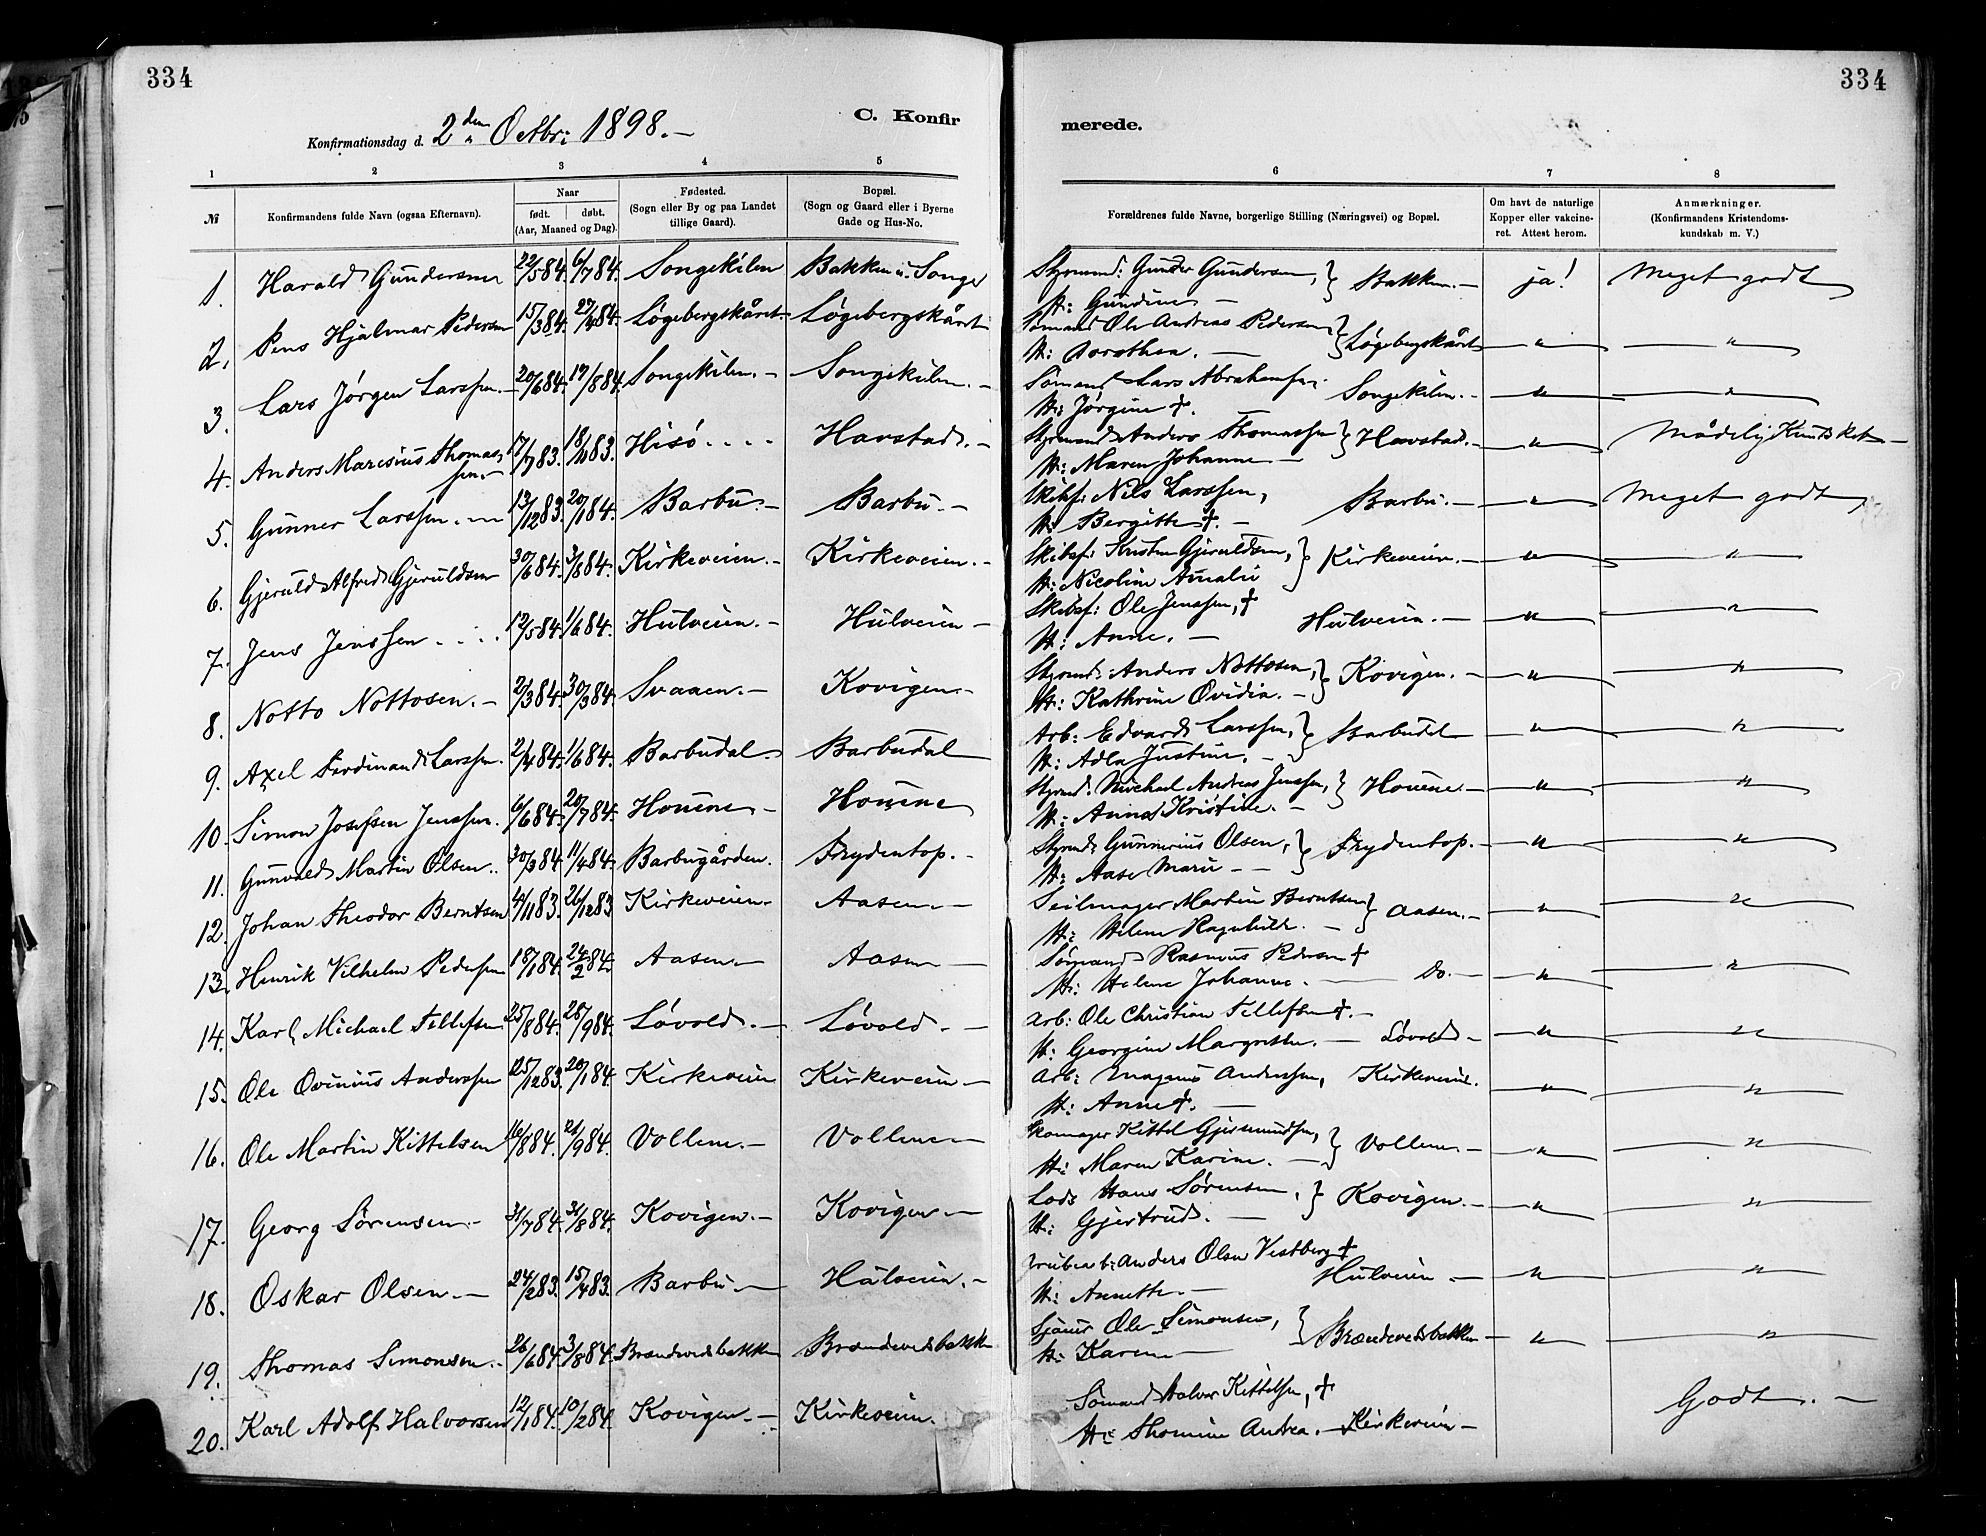 334
334
Konfirmationsdag d. 2den Octbr: 1898.—
C. Konfir
merede.
1 2 3 4 5 6 7 8
№
Konfirmandens fulde Navn (ogsaa Efternavn).
Naar
født. døbt.
(Aar, Maaned og Dag).
Fødested.
(Sogn eller By og paa Landet
tillige Gaard).
Bopæl.
(Sogn og Gaard eller i Byerne
Gade og Hus-No.
Forældrenes fulde Navne, borgerlige Stilling (Næringsvei) og Bopæl.
Om havt de naturlige
Kopper eller vakcine-
ret. Attest herom.
Anmærkninger.
(Konfirmandens Kristendoms-
kundskab m. V.)
1. Harald Gundersen 22/5 84. 6/7 84. Songekilen Bakken i Songe Styrmd: Gunder Gundersen, } Bakken.— ja! Meget godt
H: Gundine —
2. Jens Hjalmar Pedersen 15/3 84. 27/4 84. Løgebergskåret Løgebergskåret Sømand Ole Andreas Pedersen } Løgebergskåret " "
H: Dorothea. —
3. Lars Jørgen Larssen.— 20/6 84. 17/8 84. Songekilen.— Songekilen.— Sømand Lars Abrahamsen Songekilen.— " "
H: Jørgine †.
4. Anders Maresius Thomas- 17/7 83. 18/11 83. Hisö.... Havstad.— Styrmand Anders Thomassen } Havstad.— " Mådelig Kundsk
sen.— H: Maren Johanne —
5. Gunner Larssen.— 13/12 83. 20/1 84. Barbu.— Barbu.— Skibsf: Nils Larssen, Barbu.— " Meget godt
H: Bergitte †.—
6. Gjeruld Alfred Gjeruldsen 30/6 84. 3/8 84. Kirkeveien.— Kirkeveien.— Skibsf: Kristen Gjeruldsen, } Kirkeveien.— " "
H: Nicoline Amalie
7. Jens Jenssen.... 12/5 84. 1/6 84. Hulveien.— Hulveien— Skibsf: Ole Jenssen, † Hulveien.— " "
H: Anne.—
8. Notto Nottosen.— 2/3 84. 30/3 84. Svaaen.— Kovigen.— Styrmd: Anders Nottosen, } Kovigen.— " "
H: Kathrine Ovidia.—
9. Axel Ferdinand Larssen. 2/4 84. 1/6 84. Barbudal. Barbudal Arb: Edvard Larssen, } Barbudal " "
H: Adla Justine.—
10. Simon Josefsen Jenssen. 6/6 84. 20/7 84. Houene— Houene Styrmd. Michael Andreas Jenssen, } Houene.— " "
H: Anna Kristine.—
11. Gunvald Martin Olsen.. 30/3 84. 11/4 84. Barbugården. Frydentop.— Styrmd Gunnerius Olsen, } Frydentop.— " "
H: Aase Marie — —
12. Johan Theodor Berntsen 4/11 83. 26/12 83 Kirkeveien. Aasen— Seilmager Martin Berntsen } Aasen.— " "
H: Helene Ragnhild.—
13. Henrik Vilhelm Pedersen 18/1 84. 24/2 84. Aasen.— Aasen— Sømand Rasmus Pedersen † Do.— " "
H: Helene Johanne.—
14. Karl Michael Tellefsen 25/8 84. 28/9 84. Lövold.— Lövold.— Arb: Ole Christian Tellefsen †.— Lövold— " "
H: Georgine Margrethe.—
15. Ole Ovinius Anderssen 25/12 83. 20/1 84. Kirkeveien Kirkeveien— Arb: Magnus Anderssen, Kirkeveien. " "
H: Anne †.—
16. Ole Martin Kittelsen 16/8 84. 21/9 84. Vollene.— Vollene— Skomager Kittel Gjermundsen, } Vollene— " "
H: Maren Karine.—
17. Georg Sörensen.— 31/7 84. 31/8 84. Kovigen.— Kovigen— Lods Hans Sörensen, } Kovigen.— " "
H: Gjertrud.—
18. Oskar Olsen.— 24/2 83. 15/4 83. Barbu— Hulveien.— Grubearb: Anders Olsen Vestberg † Hulveien— " "
H: Annette.—
19. Thomas Simonsen.— 26/6 84. 3/8 84. Brændevedsbakken Brændevedsbakken Sjauer Ole Simonsen, } Brændevedsbakken— " "
H: Karen—
20. Karl Adolf Halvorsen 12/1 84. 10/2 84. Kovigen.— Kirkeveien. Sömand Halvor Kittelsen, † Kirkeveien— Godt.—
H: Thomine Andrea.—